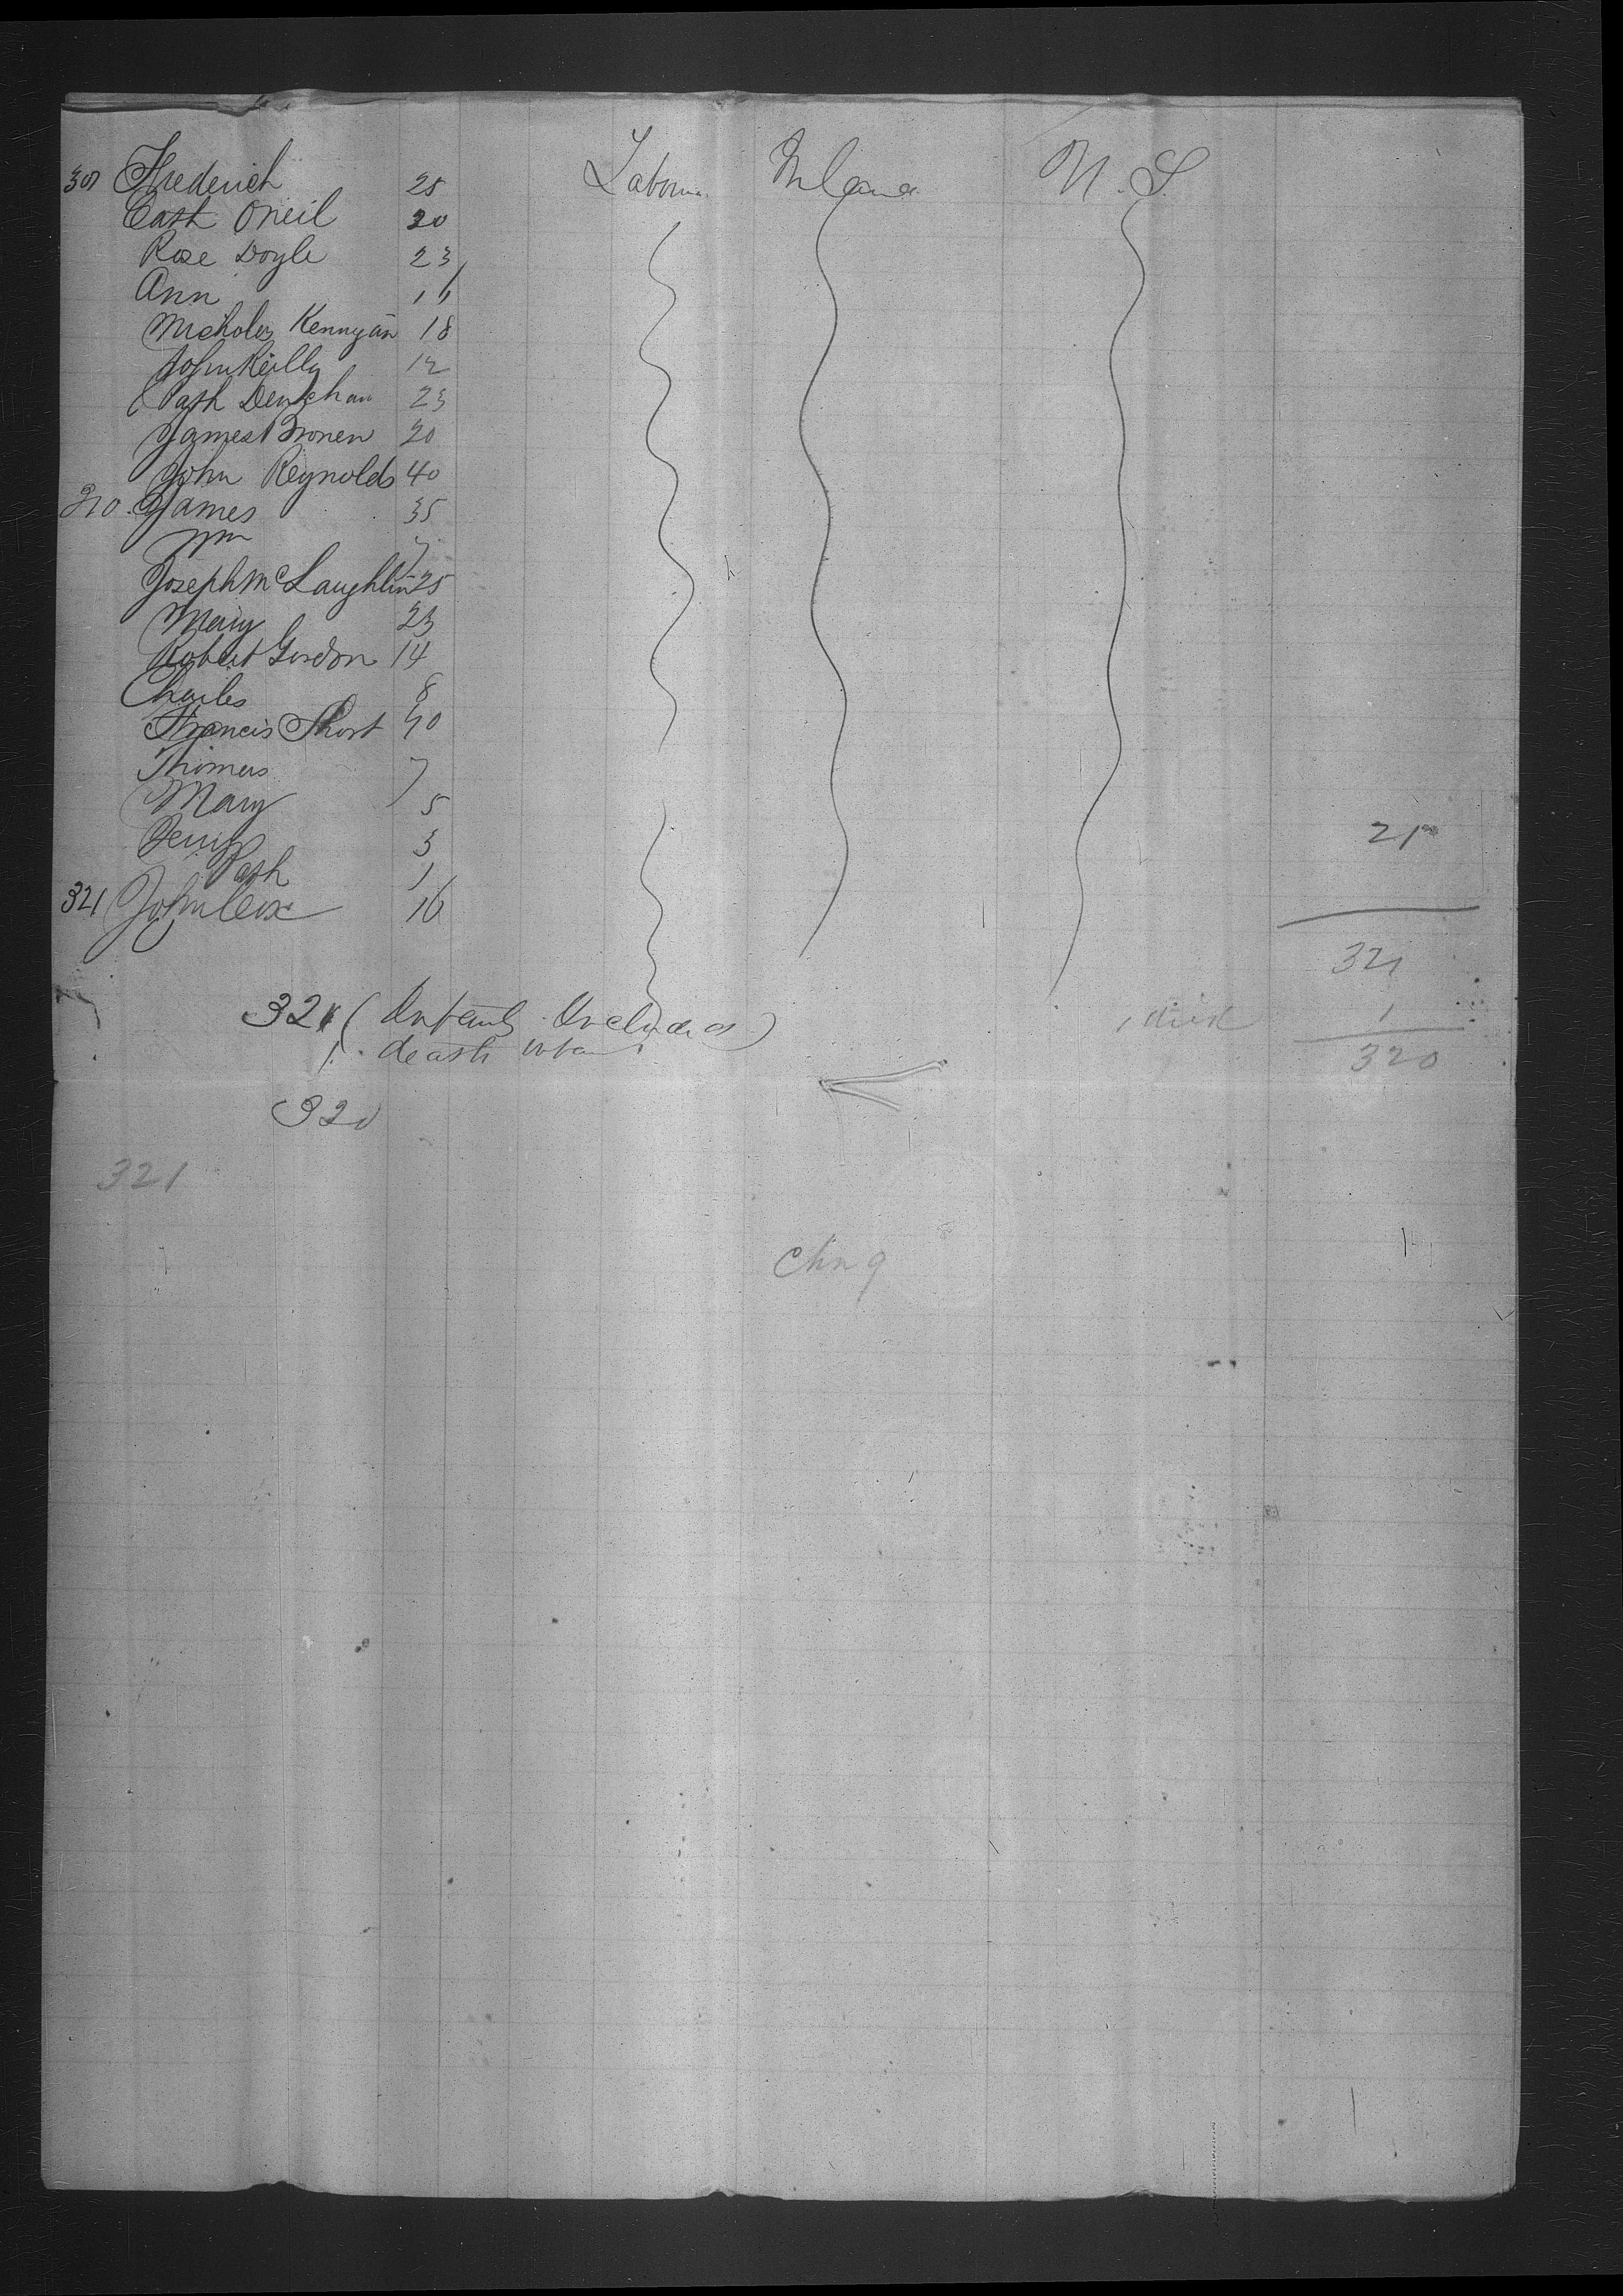 301 Frederick 25 Laborer Ireland U. S.
Cath Oneil 20
Rose Doyle 23
Ann 16
Nicholas Kernyan 18
John Reilly 12
Cath 23
James 20
John Reynolds 40
310 James 35
Wm 7
Joseph McLaughlin 25
Mary 23
Robert Gordon 14
Charles 8
Francis Short 40
Thomas 7
Mary 5 21
3
Cath 1
321 John Cox 16
321
321 (Infants Included) 1 died 1
1 death infant 320
320
321